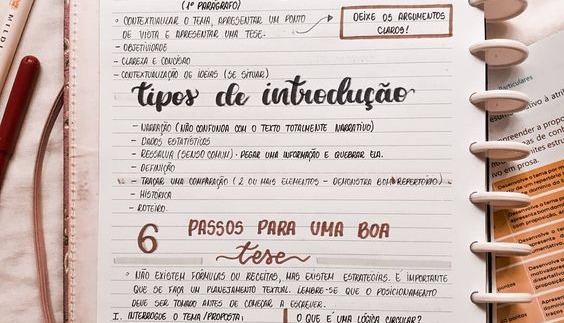 MILDI
(1º PARÁGRAFO)
◦ CONTEXTUALIZAR O TEMA, APRESENTAR UM PONTO
DE VISTA E APRESENTAR UMA TESE.
DEIXE OS ARGUMENTOS
CLAROS!
- OBJETIVIDADE
- CLAREZA E CONCISÃO
- CONTEXTUALIZAÇÃO DE IDEIAS (SE SITUAR)
tipos de introdução
- NARRAÇÃO (NÃO CONFUNDA COM O TEXTO TOTALMENTE NARRATIVO)
- DADOS ESTATÍSTICOS
- RESSALVA (SENSO COMUM) - PEGAR UMA INFORMAÇÃO E QUEBRAR ELA.
- DEFINIÇÃO
- TRAÇAR UMA COMPARAÇÃO (2 OU MAIS ELEMENTOS - DEMONSTRA BOM REPERTÓRIO)
- HISTÓRICA
- ROTEIRO
6 PASSOS PARA UMA BOA
tese
◦ NÃO EXISTEM FÓRMULAS OU RECEITAS, MAS EXISTEM ESTRATÉGIAS. É IMPORTANTE
QUE SE FAÇA UM PLANEJAMENTO TEXTUAL. LEMBRE-SE QUE O POSICIONAMENTO
DEVE SER TOMADO ANTES DE COMEÇAR A ESCREVER.
I. INTERROGUE O TEMA/PROPOSTA:
O QUE É UMA LÓGICA CIRCULAR?
Particulares
em prosa.